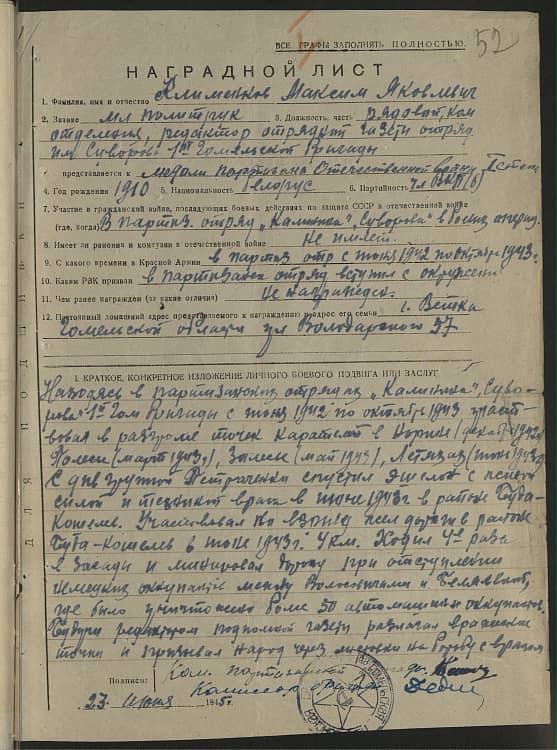 ВСЕ ГРАФЫ ЗАПОЛНЯТЬ ПОЛНОСТЬЮ.
52
НАГРАДНОЙ ЛИСТ
1. Фамилия, имя и отчество Клименков Максим Яковлевич
2. Звание мл политрук 3. Должность, часть рядовой, ком
отделения, редактор отрядной газеты отряд
им Суворова 1й Гомельской бригады
представляется к медали партизана Отечественной войны I степ
4. Год рождения 1910 5. Национальность белорус 6. Партийность чл ВКП(б)
7. Участие в гражданской войне, последующих боевых действиях по защите СССР в отечественной войне
(где, когда) В партиз. отряд „Калинина", „Суворова" в боевых операц.
8. Имеет ли ранения и контузии в отечественной войне не имеет.
9. С какого времени в Красной Армии в партиз отр с июня 1942 по октябрь 1943г.
10. Каким РВК призван в партизанск отряд вступил с окружени
11. Чем ранее награжден (за какие отличия) не награжден.
12. Постоянный домашний адрес представляемого к награждению и адрес его семьи г. Ветка
Гомельской области ул Володарского 57
ДЛЯ ПОДШИВКИ
I. КРАТКОЕ, КОНКРЕТНОЕ ИЗЛОЖЕНИЕ ЛИЧНОГО БОЕВОГО ПОДВИГА ИЛИ ЗАСЛУГ
Находясь в партизанских отрядах „Калинина", „Суво-
рова" 1й Гом бригады с июня 1942 по октябрь 1943 участ-
вовал в разгроме точек карателей в (декаб 1942)
(март 1943г), (май 1943), (июнь 1943)
С див группой Петраченки спустил эшелон с
силой и техникой врага в июне 1943г в районе Буда-
Кошелев. Участвовал во взрыве жел дороги в районе
Буда-Кошелев в июне 1943г. 4 км. Ходил 4 раза
в засады и минировал дорогу при отступлении
немецких оккупантов между и
где было уничтожено более 50 автомашин оккупантов.
Будучи редактором подпольной газеты разлагал вражеские
точки и призывал народ через листовки на борьбу с врагом
Ком. партизанской бригады
Подписи: Комиссар бригады
23 июня 1945г.